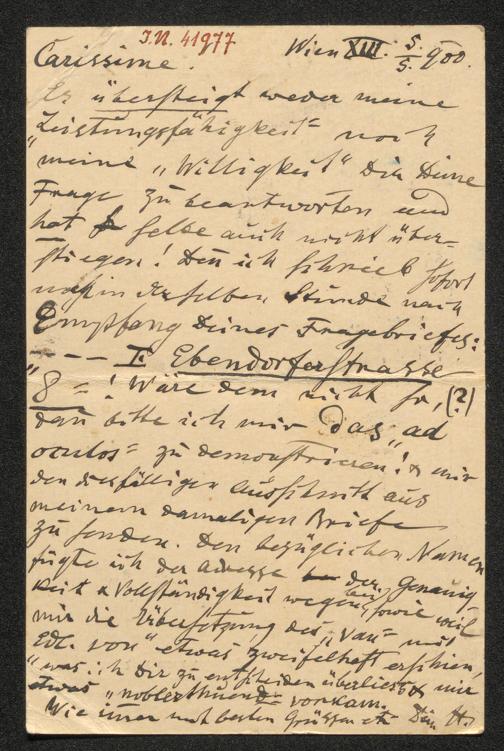 I.N. 41977
Wien XIII. 5./5. 900.
Carissime.
Es übersteigt weder meine
Leistungsfähigkeit noch
meine „Willigkeit" Dir Deine
Frage zu beantworten und
hat selbe auch nicht über-
stiegen! Denn ich schrieb sofort
noch in derselben Stunde nach
Empfang Deines Fragebriefes:
– – – I. Ebendorferstrasse
8 = ! Wäre dem nicht so, (?)
dann bitte ich mir das „ad
oculos" zu demonstrieren! & mir
den diesfälligen Ausschnitt aus
meinem damaligen Briefe
zu senden. Den bezüglichen Namen
fügte ich der Adresse der Genauig-
keit & Vollständigkeit wegen bei, sowie weil
mir die Übersetzung des „Van" mit
Edl. von" etwas zweifelhaft erschien,
was ich Dir zu entscheiden überliess & mir
etwas „noblerthuend" vorkam.
Wie immer mit besten Grüssen etc Dein H.